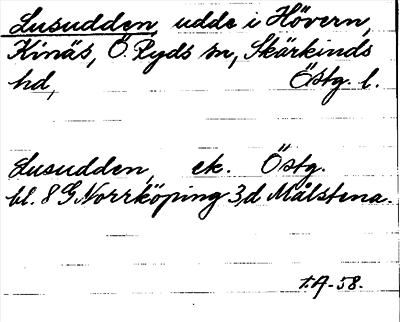 Lusudden, udde i Hövern,
Kinäs, Ö. Ryds sn, Skärkinds
hd, Östg. l.
Lusudden, ek. Östg.
bl. 8 G Norrköping 3,d Målstena.
I.A-58.